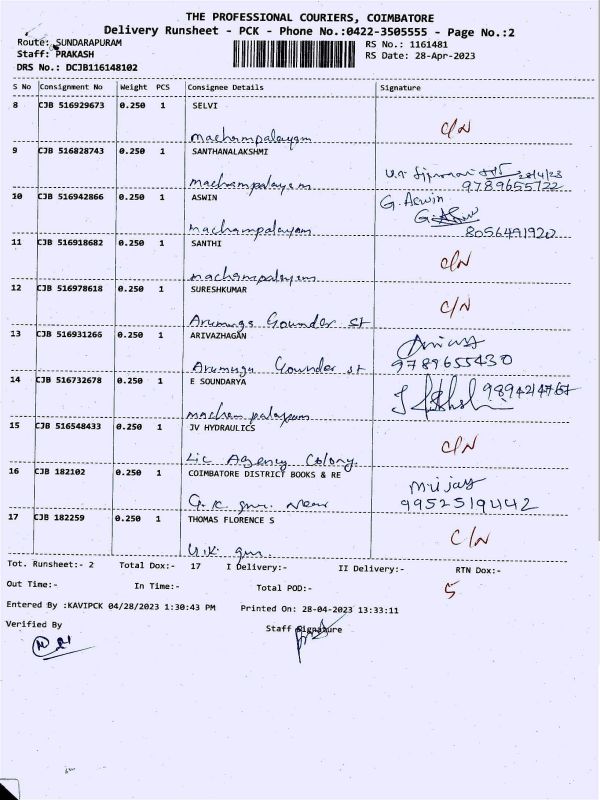 THE PROFESSIONAL COURIERS, COIMBATORE
Delivery Runsheet - PCK - Phone No.:0422-3505555 - Page No.:2
Route: SUNDARAPURAM
RS No.: 1161481
Staff: PRAKASH
RS Date: 28-Apr-2023
DRS No.: DCJB116148102
S No Consignment No Weight PCS Consignee Details Signature
8 CJB 516929673 0.250 1 SELVI
Machampalayam C/N
9 CJB 516828743 0.250 1 SANTHANALAKSHMI
Machampalayam 28/4/23
9789655722
10 CJB 516942866 0.250 1 ASWIN G. Aswin
Machampalayam 8056491920
11 CJB 516918682 0.250 1 SANTHI
Machampalayam C/N
12 CJB 516978618 0.250 1 SURESHKUMAR C/N
Arumuga Gounder st
13 CJB 516931266 0.250 1 ARIVAZHAGAN
Arumuga Gounder st 9789655430
14 CJB 516732678 0.250 1 E SOUNDARYA
Machampalayam
15 CJB 516548433 0.250 1 JV HYDRAULICS C/N
Lic Agency Colony.
16 CJB 182102 0.250 1 COIMBATORE DISTRICT BOOKS & RE
near 9952519442
17 CJB 182259 0.250 1 THOMAS FLORENCE S C/N
Tot. Runsheet:- 2 Total Dox:- 17 I Delivery:- II Delivery:- RTN Dox:-
Out Time:- In Time:- Total POD:- 5
Entered By :KAVIPCK 04/28/2023 1:30:43 PM Printed On: 28-04-2023 13:33:11
Verified By Staff Signature